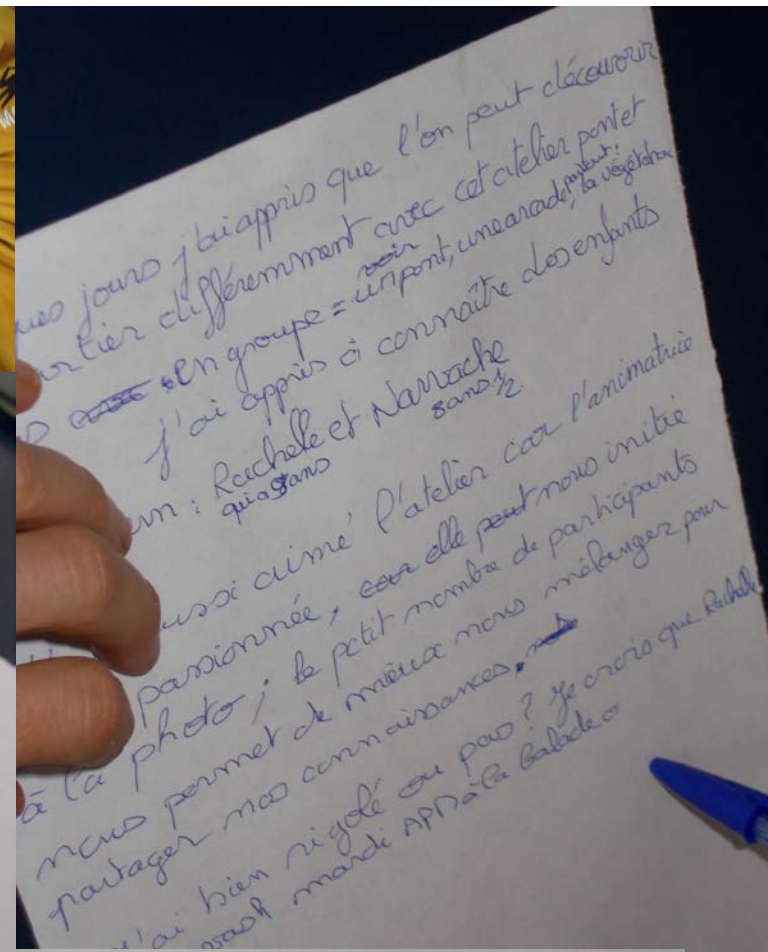 jours j'ai appris que l'on peut découvrir
différemment avec cet atelier
en groupe = voir un pont, une arcade, la végétation
J'ai appris à connaître des enfants
: Rachelle et Narrache
qui a ans 8 ans 1/2.
aussi aimé l'atelier car l'animatrice
passionnée, car elle peut nous initié
à la photo ; le petit nombre de participants
nous permet de mieux nous mélanger pour
partager nos connaissances.
J'ai bien rigolé ou pas ? Je crois que Rachelle
mardi APM à la Balade